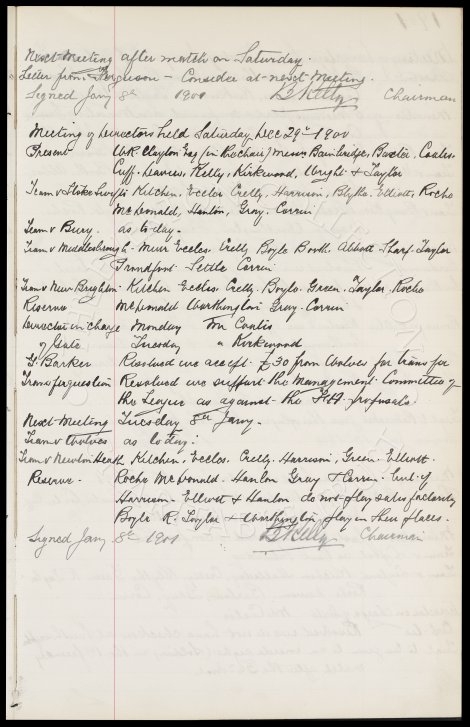 Next Meeting after match on Saturday.
Letter from Ferguson - Consider at next Meeting.
Signed Jany 8th 1901 Kelly Chairman
Meeting of Directors held Saturday Dec 29th 1900
Present W.R. Clayton Esq (in the chair) Messrs Bainbridge, Baxter, Coates
Cuff. Leaver, Kelly, Kirkwood, Wright & Taylor
Team v Stoke Kitchen, Eccles Crelly, Harrison, Blythe. Elliott, Roche
McDonald, Hanlon, Gray. Corrin
Team v Bury. as to-day.
Team v Middlesbrough - Muir Eccles Crelly Boyle Booth. Abbott. Sharp. Taylor
Proudfoot Settle Corrin
Team v New Brighton Kitchen Eccles. Crelly. Boyle. Green. Taylor. Roche
Reserve McDonald Worthington Gray. Corrin
Director in charge Monday Mr Coates
of Gate Tuesday " Kirkwood
G. Barker Resolved we accept £30 from Wolves for transfer
Resolved we support the Management Committee of
the League as against the proposals
Next Meeting Tuesday 8th Jany.
Team v Wolves as to day.
Team v Newton Heath Kitchen. Eccles. Crelly. Harrison, Green. Elliott.
Reserve. Roche McDonald. Hanlon Gray & Corrin but if
Harrison. Elliott & Hanlon do not play satisfactorily
Boyle R. Taylor & Worthington play in their places.
Signed Jany 8th 1901 Kelly Chairman